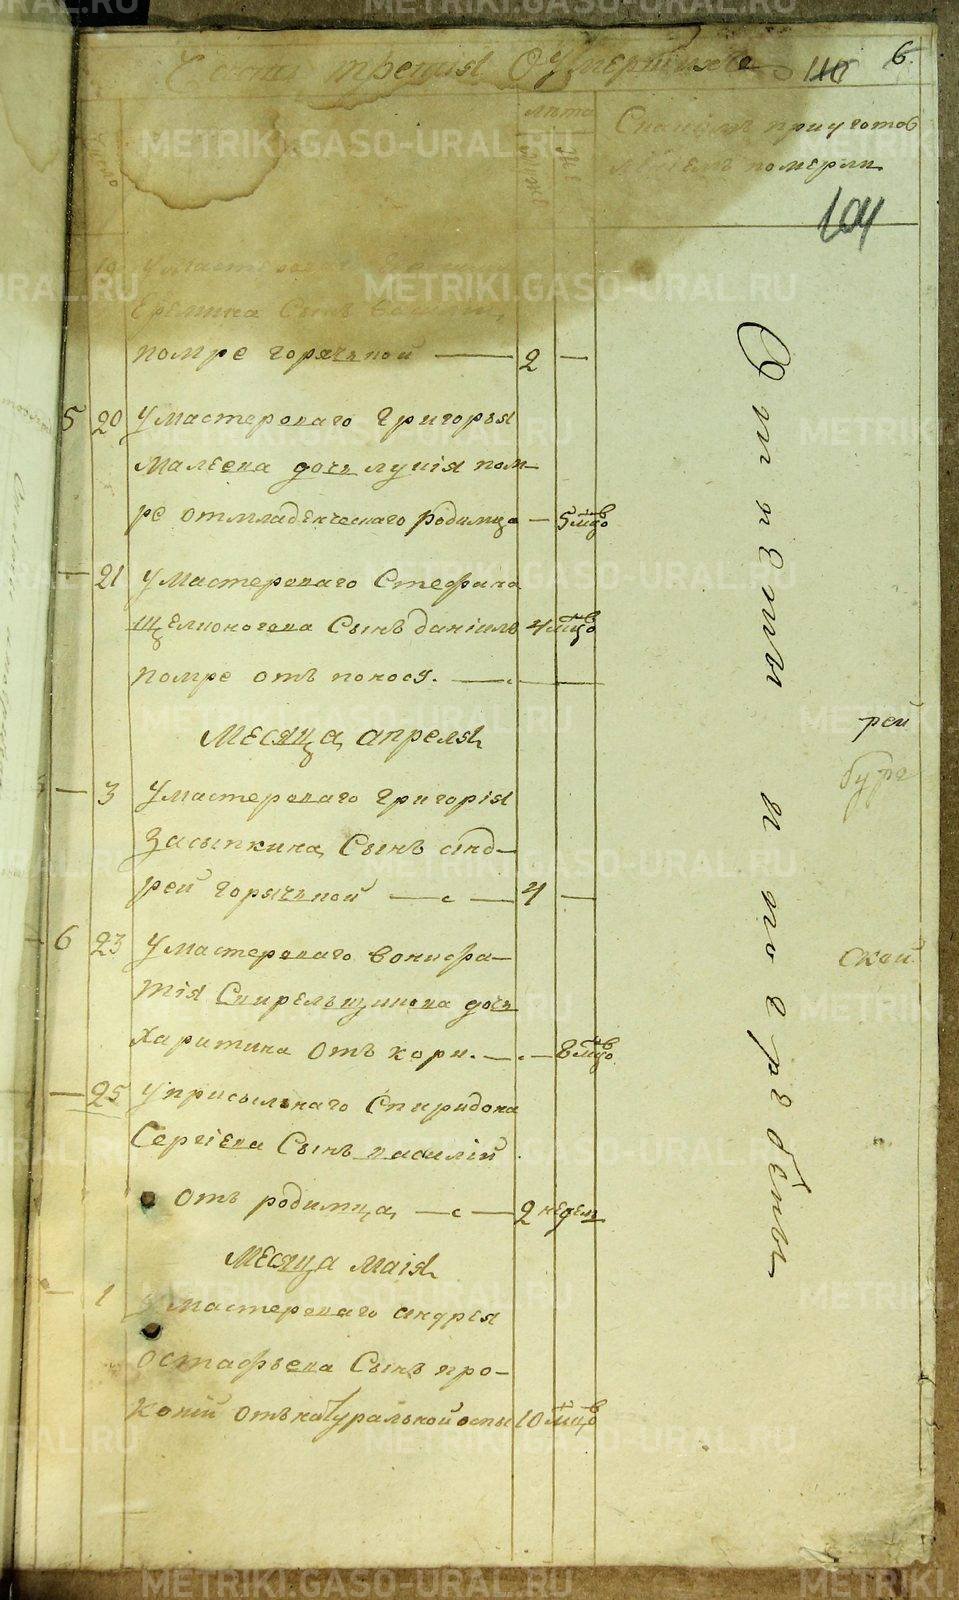 Часть третия О умерших 110 6.
лета
Число
муж
Ж
С каким приуготов
лением померли
104
19 У мастерскаго
Еремина Сынъ Василий
помре горячкой — 2 —
5 20 У мастерскаго Григорья
Малеева дочь Лукия пом-
ре от младенческаго родимца — 5 мцов
— 21 У мастерскаго Стефана
Щелконогова Сынъ даніилъ 4 мцов
помре отъ поносу. —
Месяца апреля
— 3 У мастерскаго Григорія
Засыпкина Сынъ анд-
рей горячкой — 4 —
6 23 У мастерскаго Вонифа-
тія Спирельщикова дочь
Харитина отъ кори. — 8 мцов
— 25 У присыльнаго Спиридона
Сергіева Сынъ василій
отъ родимца — 2 недели
Месяца Маія
— 1 У мастерскаго андрея
остафьева Сынъ про-
копій отъ натуральной оспы 10 мцов
Отпеты и погребены
рей
бург
ской
METRIKI.GASO-URAL.RU